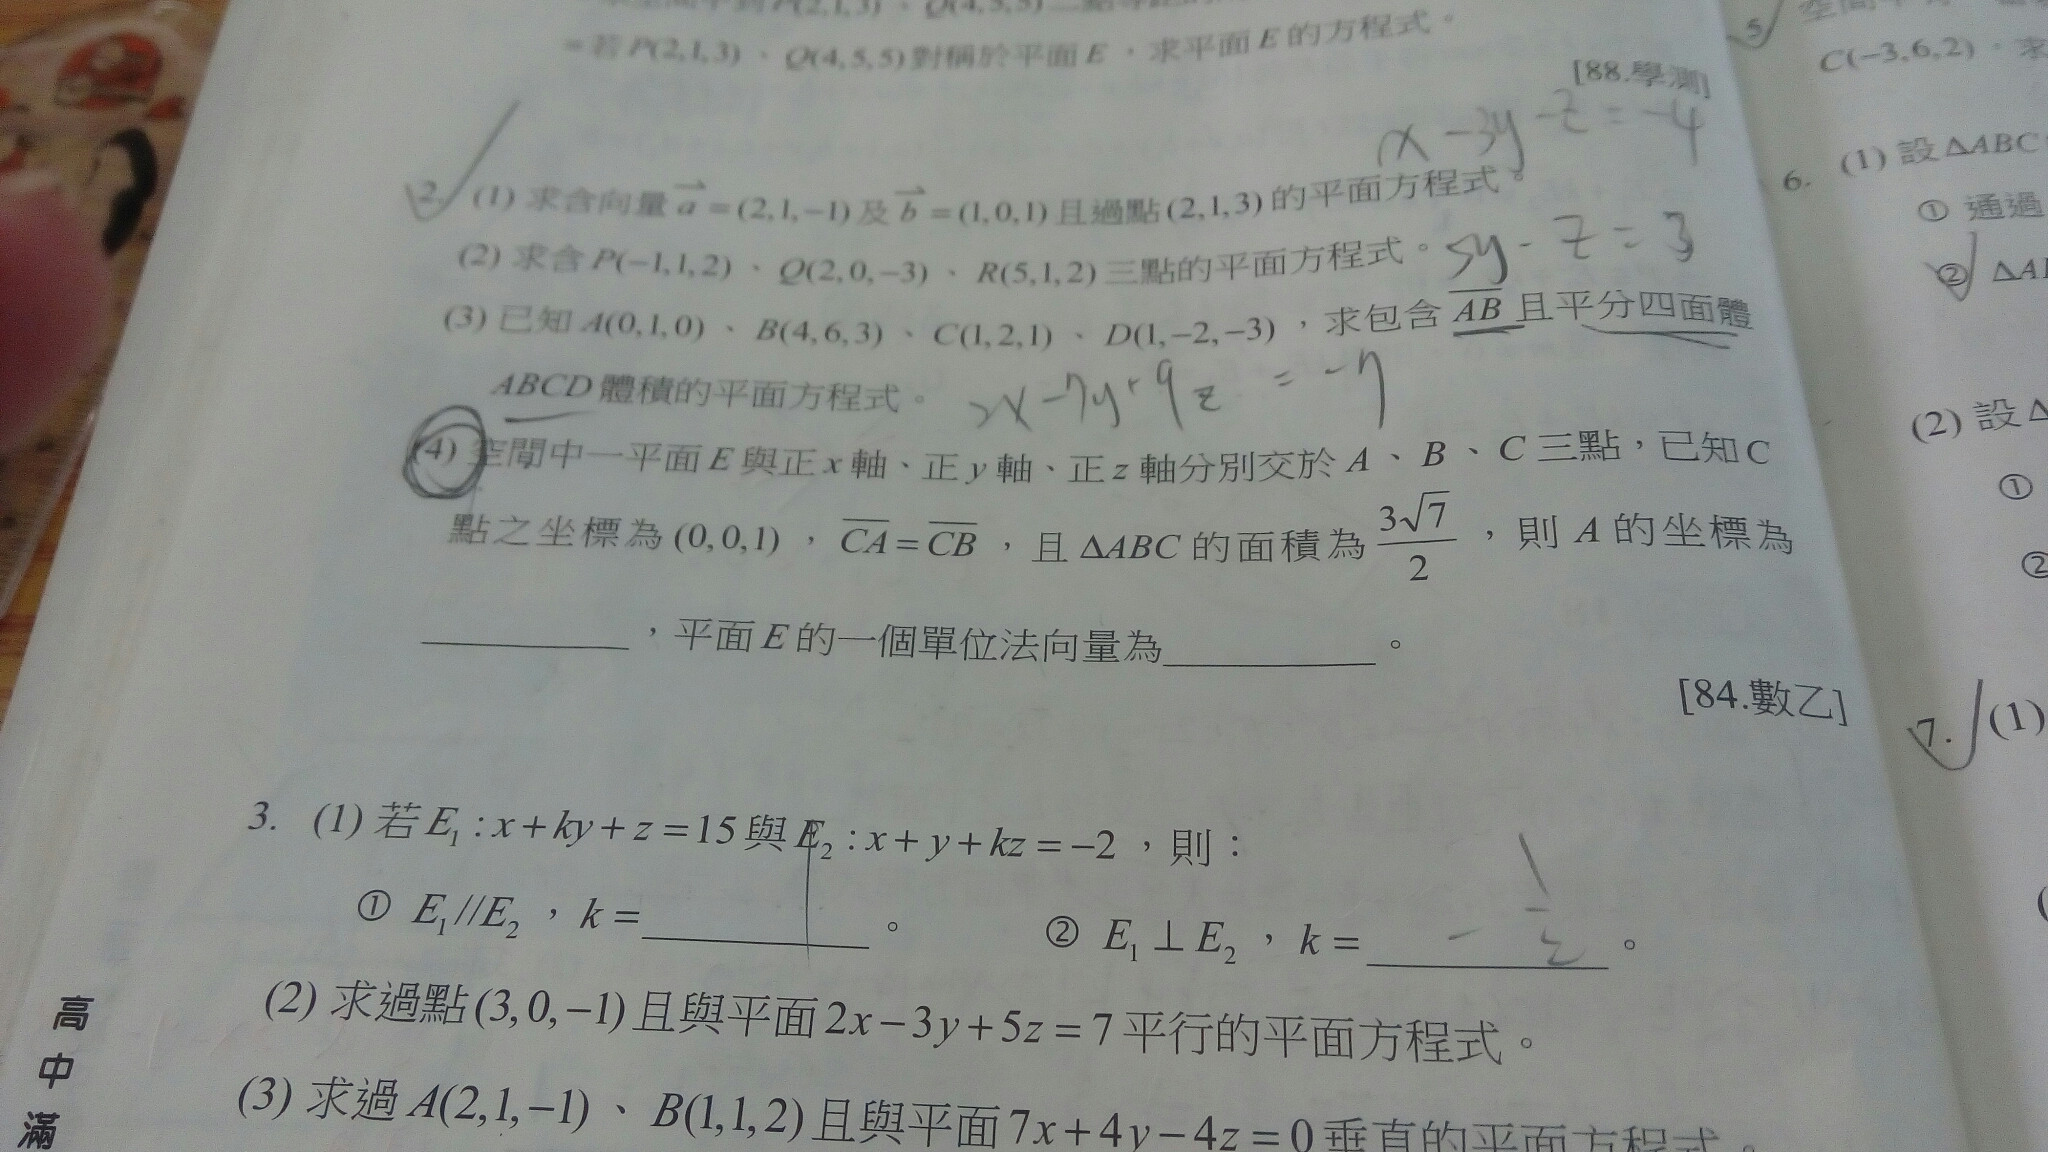 P(2,1,3)、Q(4,5,5)二點
若P(2,1,3)、Q(4,5,5)對稱於平面E,求平面E的方程式。
[88.學測]
x-3y-z=-4
2. (1) 求含向量a=(2,1,-1)及b=(1,0,1)且過點(2,1,3)的平面方程式。
(2) 求含P(-1,1,2)、Q(2,0,-3)、R(5,1,2)三點的平面方程式。 5y-z=3
(3) 已知A(0,1,0)、B(4,6,3)、C(1,2,1)、D(1,-2,-3),求包含AB且平分四面體
ABCD體積的平面方程式。 2x-7y+9z=-7
(4) 空間中一平面E與正x軸、正y軸、正z軸分別交於A、B、C三點,已知C
點之坐標為(0,0,1),CA=CB,且ΔABC的面積為3√7/2,則A的坐標為
,平面E的一個單位法向量為 。
[84.數乙]
3. (1) 若E₁:x+ky+z=15與E₂:x+y+kz=-2,則:
① E₁//E₂,k= 。 ② E₁⊥E₂,k= -1/2 。
(2) 求過點(3,0,-1)且與平面2x-3y+5z=7平行的平面方程式。
(3) 求過A(2,1,-1)、B(1,1,2)且與平面7x+4y-4z=0垂直的平面方程式。
高
中
滿
5
C(-3,6,2),求
6. (1) 設ΔABC
① 通過
②
(2) 設Δ
①
②
7. (1)